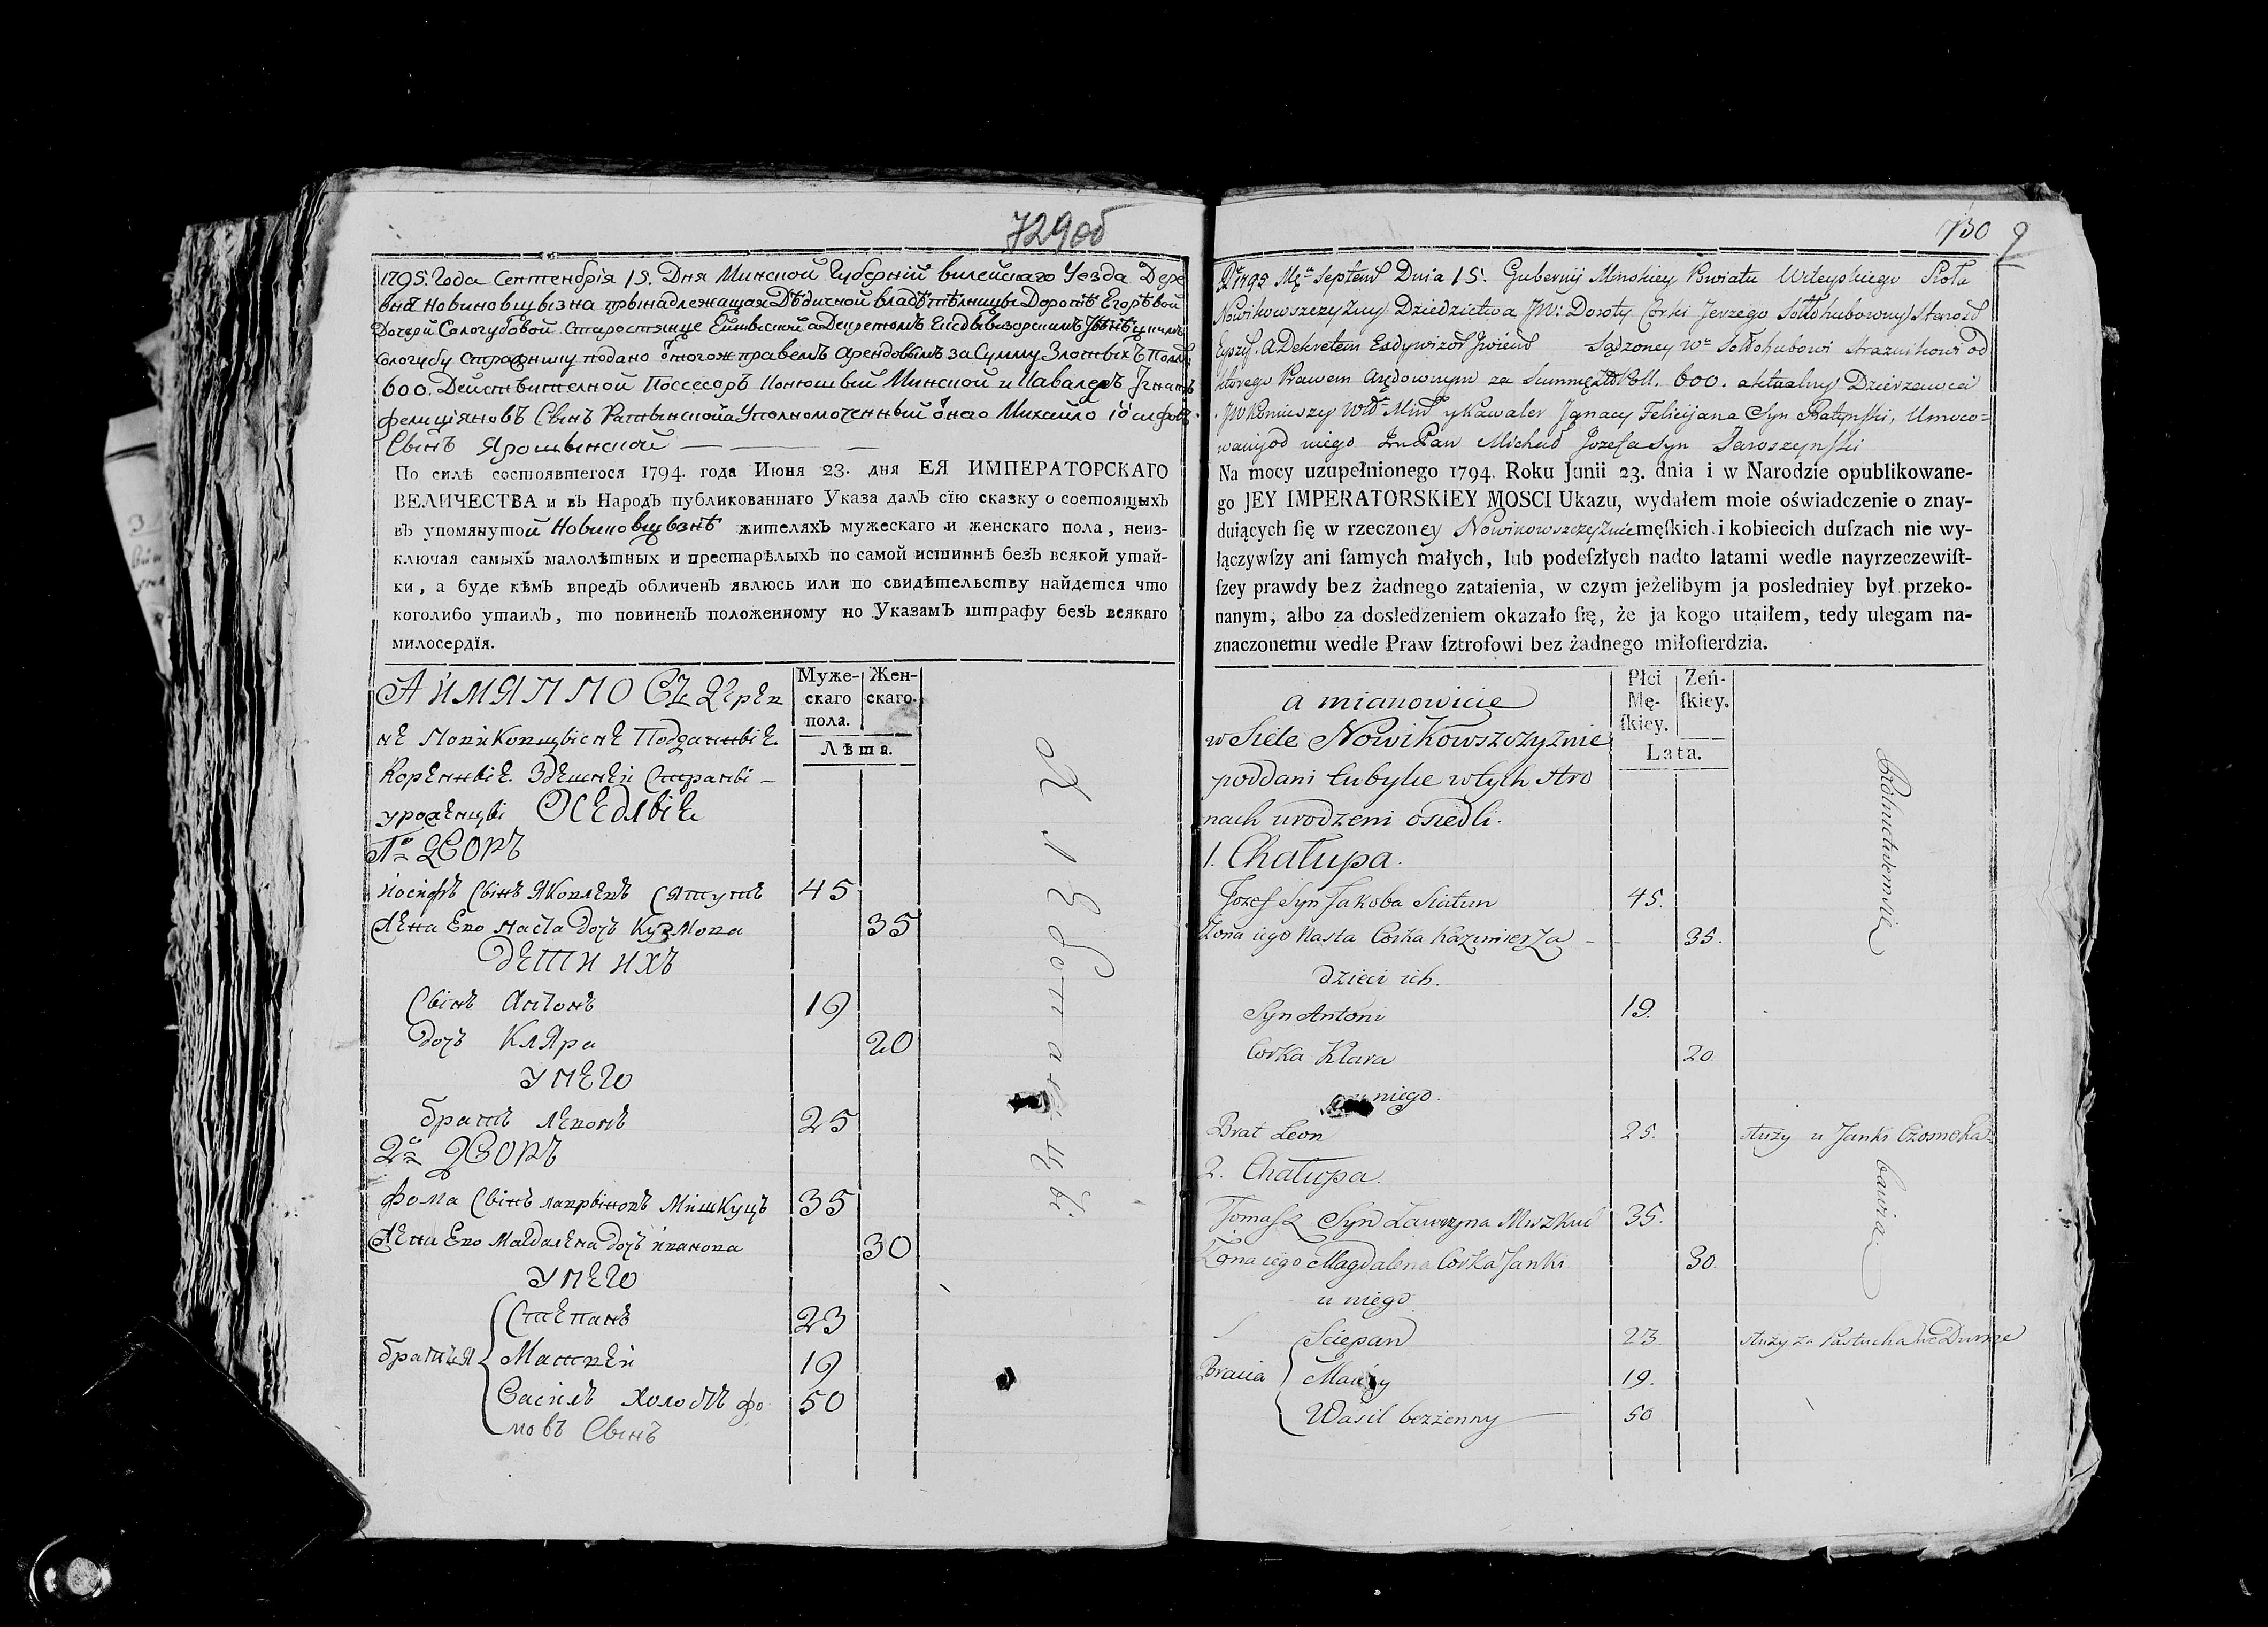 729об
1795. Года Сентенбрія 15. Дня Минской Губерніи вилейскаго Уезда Дере
вня Новиковщызна прынадлежащая Дѣдичной владѣтѣлницы Доротѣ Егорѣвой
Дочери Сологубовой
Сологубу подано правемъ Арендовымъ за Сумму Злотыхъ
600. Дейстѣвителной Поссесоръ Конюшый Минской и Кавалеръ
фелиціяновъ Сынъ а Уполномоченный Михайло
Сынъ Ярошынской
По силѣ состоявшегося 1794. года Июня 23. дня ЕЯ ИМПЕРАТОРСКАГО
ВЕЛИЧЕСТВА и въ Народъ публикованнаго Указа далъ сїю сказку о состоящыхъ
въ упомянутой Новиковщызнѣ жителяхъ мужескаго и женскаго пола, неиз-
ключая самыхъ малолѣтныхъ и престарѣлыхъ по самой истиннѣ безъ всякой утай-
ки, а буде кѣмъ впредъ обличенъ явлюсь или по свидѣтельству найдется что
коголибо утаилъ, то повиненъ положенному по Указамъ штрафу безъ всякаго
милосердїя.
Муже-
скаго
пола.
Жен-
скаго.
Лѣта.
А ИМЯННО Въ Дерев
нѣ Новиковщызнѣ Подданные
Коренные Здешней Страны
уроженцы Оседлые
1й Дворъ
Иосифъ Сынъ Яковлевъ Сятунъ 45
Жена Ево Наста дочъ Кузмова 35
дети ихъ
Сынъ Антонъ 19
дочъ Кляра 20
у него
братъ Левонъ 25
2й Дворъ
Фома Сынъ лаврыновъ Мишкуцъ 35
Жена Ево Магдалена дочъ иванова 30
у него
братья
Степанъ 23
Матвей 19
Василъ Холостъ фо 50
мовъ Сынъ
730
Septem Dnia 15. Gubernij Minskiey Powiatu Wileyskiego Sioła
Nowikowszczyzny Dziedzictwa JW: Doroty Corki Jerzego Sołłohubowny
Sądzoney Wu Sołłohubowi Straznikowi od
ktorego Prawem Arędownym za Summę 600. aktualny Dzierzawca
y Kawaler Jgnacy Felicijana Syn Ratynski, Umoco=
wany od niego Pan Michał Jozefa syn Jaroszynski
Na mocy uzupełnionego 1794. Roku Junii 23. dnia i w Narodzie opublikowane-
go JEY IMPERATORSKIEY MOSCI Ukazu, wydałem moie oświadczenie o znay-
duiących ſię w rzeczoney Nowikowszczyznie męſkich i kobiecich duſzach nie wy-
łączywſzy ani ſamych małych, lub podeſzłych nadto latami wedle nayrzeczewiſt-
ſzey prawdy bez żadnego zataienia, w czym jeżelibym ja posledniey był przeko-
nanym, albo za dosledzeniem okazało ſię, że ja kogo utaiłem, tedy ulegam na-
znaczonemu wedle Praw ſztrofowi bez żadnego miłoſierdzia.
Płci
Mę-
ſkiey.
Zeń-
ſkiey.
Lata.
a mianowicie
w Siele Nowikowszczyznie
poddani tubylce w tych stro
nach urodzeni osiedli.
1. Chałupa.
Jozef Syn Jakoba Siatun 45.
Zona iego Nasta Corka Kazimierza 35.
dzieci ich.
Syn Antoni 19.
Corka Klara 20
u niego.
Brat Leon 25. służy u Janki
2. Chałupa.
Tomasz Syn Ławryna Miszkuc 35.
Zona iego Magdalena Corka Janki 30.
u niego
Bracia
Sciepan 23. służy za Pastucha
Maciey 19.
Wasil bezżenny 50
Rolnictwem się
bawią.